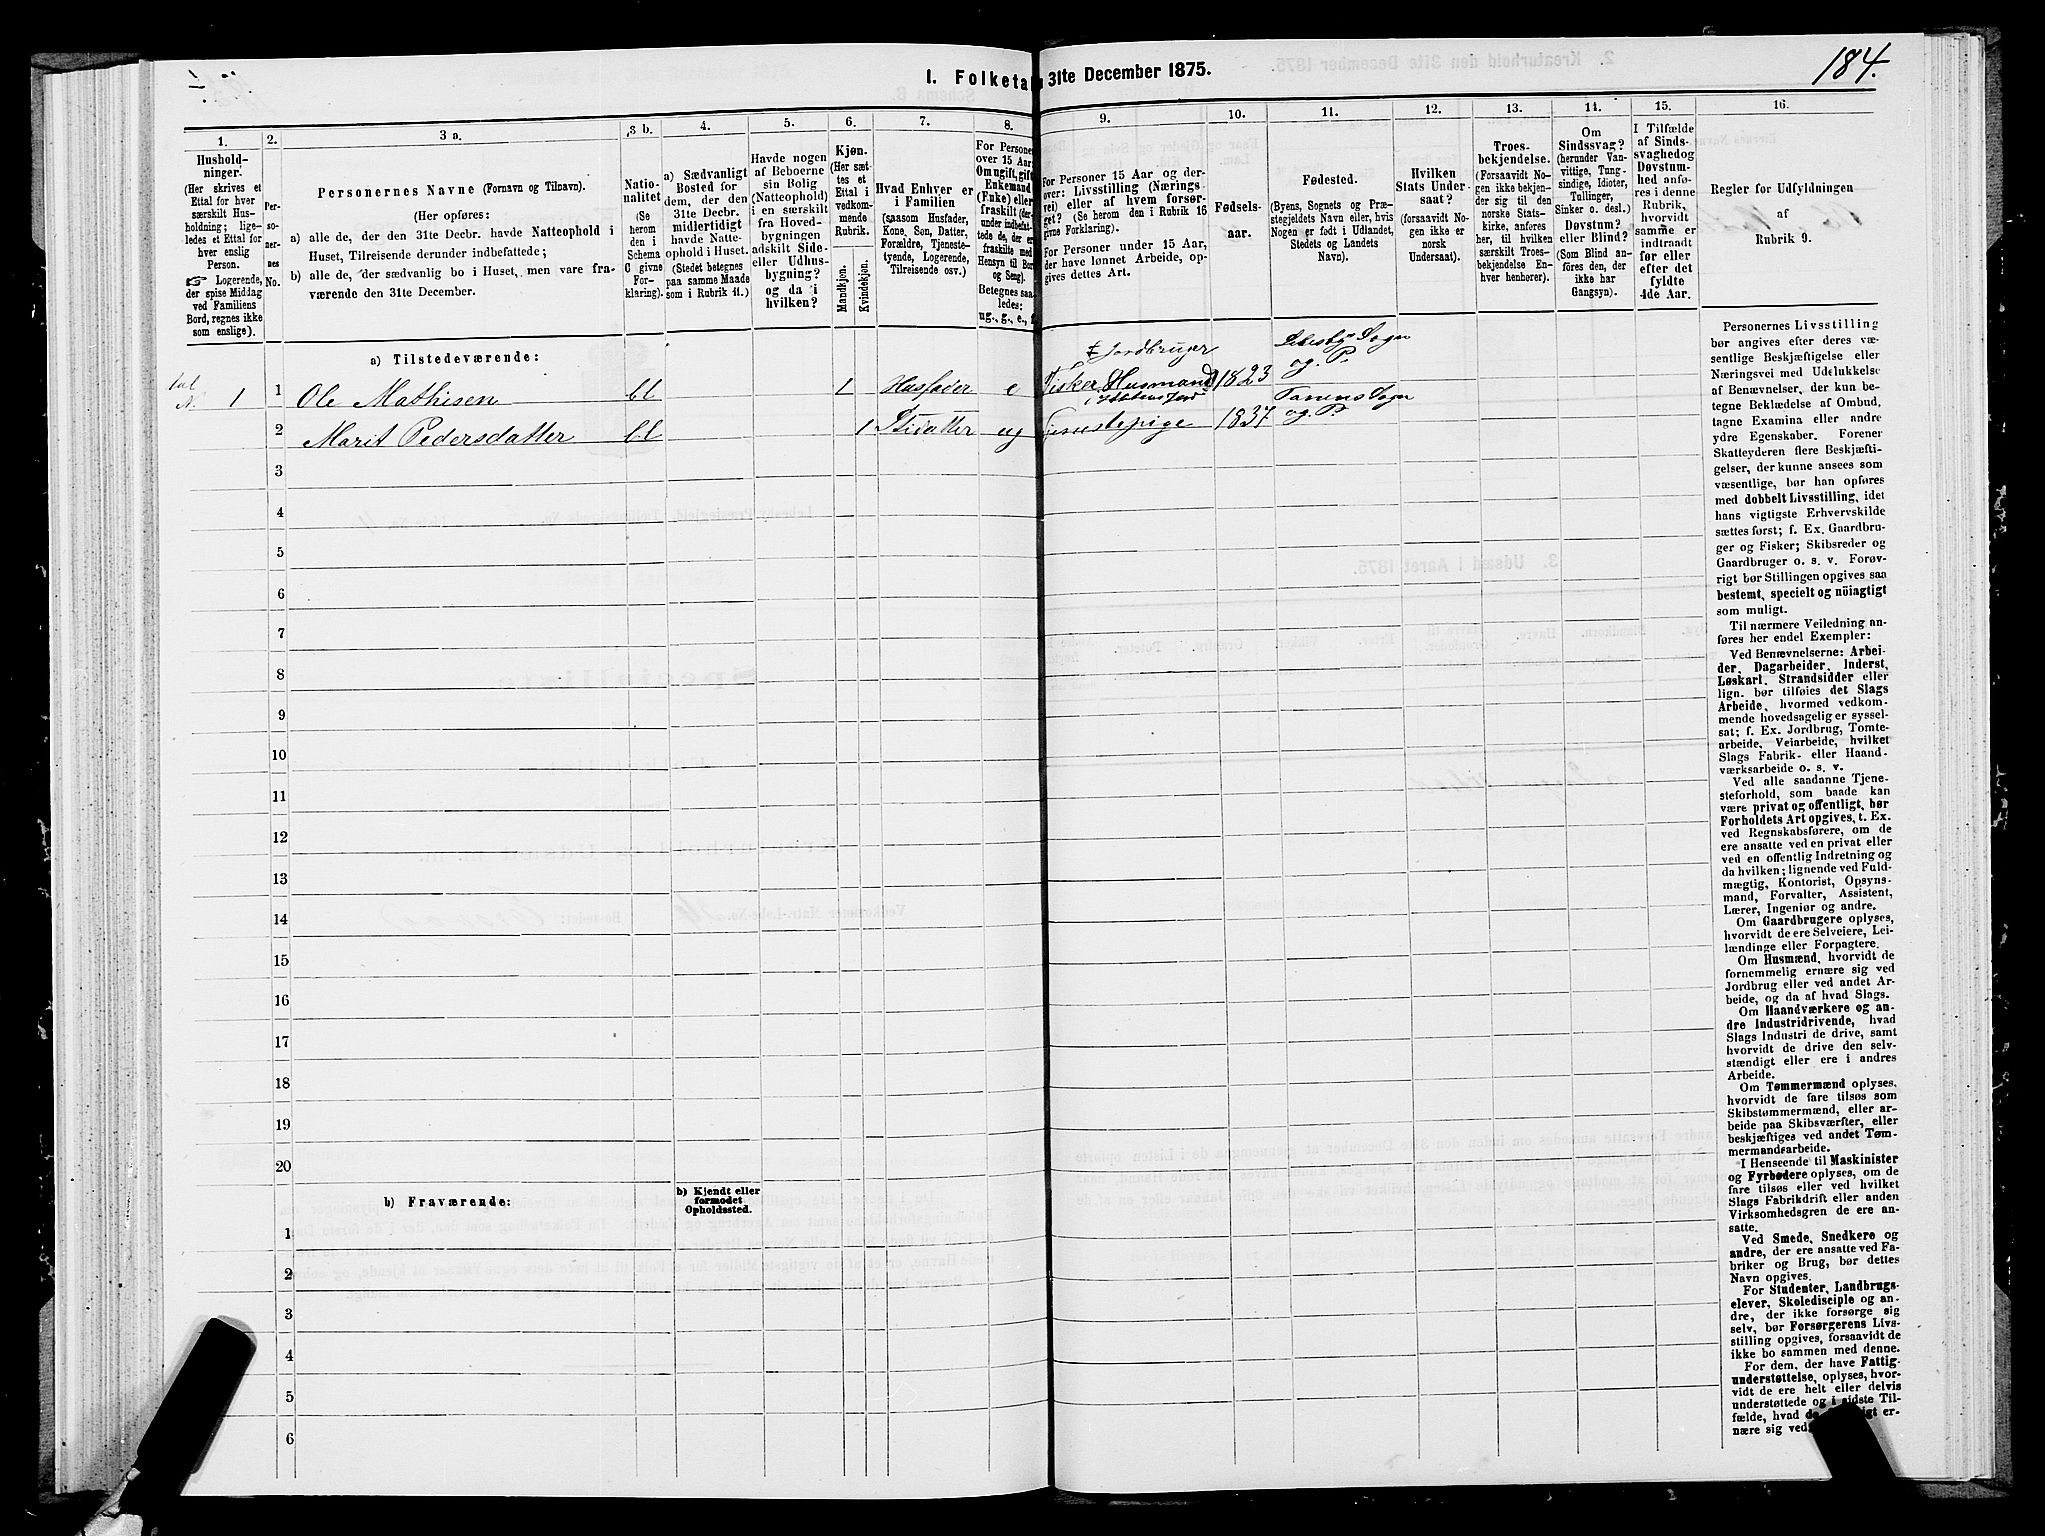 184.
I. Folketal 31te December 1875.
1.
Hushold-
ninger.
(Her skrives et
Ettal for hver
særskilt Hus-
holdning; lige-
ledes et Ettal for
hver enslig
Person.
Logerende,
der spise Middag
ved Familiens
Bord, regnes ikke
som enslige).
2.
Per-
so-
ner-
nes
No.
3 a.
Personernes Navne (Fornavn og Tilnavn).
(Her opføres:
a) alle de, der den 31te Decbr. havde Natteophold i
Huset, Tilreisende derunder indbefattede;
b) alle de, der sædvanlig bo i Huset, men vare fra-
værende den 31te December.
3 b.
Natio-
nalitet
(Se
herom
den i
Schema
C givne
For-
klaring).
4.
a) Sædvanligt
Bosted for
dem, der den
31te Decbr.
midlertidigt
havde Natte-
ophold i Huset.
(Stedet betegnes
paa samme Maade
som i Rubrik 11.)
5.
Havde nogen
af Beboerne
sin Bolig
(Natteophold)
i en særskilt
fra Hoved-
bygningen
adskilt Side-
eller Udhus-
bygning?
og da i
hvilken?
6.
Kjøn.
(Her sæt-
tes et
Ettal i
vedkom-
mende
Rubrik.
Mandkjøn.
Kvindekjøn.
7.
Hvad Enhver er
i Familien
(saasom Husfader,
Kone, Søn, Datter,
Forældre, Tjeneste-
tyende, Logerende,
Tilreisende osv.)
8.
For Personer
over 15 Aar:
Om ugift, gift,
Enkemand
(Enke) eller
fraskilt (der-
under indbefat-
tede de, der er
fraskilte med
Hensyn til Bord
og Seng).
Betegnes saa-
ledes:
ug., g., e., f.
9.
For Personer 15 Aar og der-
over: Livsstilling (Nærings
vei) eller af hvem forsør-
get? (Se herom den i Rubrik 16
givne Forklaring).
For Personer under 15 Aar,
der have lønnet Arbeide, op-
gives dettes Art.
10.
Fødsels-
aar.
11.
Fødested.
(Byens, Sognets og Præ-
stegjeldets Navn eller, hvis
Nogen er født i Udlandet,
Stedets og Landets
Navn).
12.
Hvilken
Stats Under-
saat?
(forsaavidt No-
gen ikke er
norsk
Undersaat).
13.
Troes-
bekjendelse.
(Forsaavidt No-
gen ikke bekjen-
der sig til den
norske Stats-
kirke, anføres
her, til hvilken
særskilt Troes-
bekjendelse En-
hver henhører).
14.
Om
Sindssvag?
(herunder Van-
vittige, Tung-
sindige, Idioter,
Tullinger,
Sinker o. desl.)
Døvstum?
eller Blind?
(Som Blind an-
føres den, der
ikke har
Gangsyn).
15.
I Tilfælde
af Sinds-
svaghed og
Døvstum-
hed anfø-
res i denne
Rubrik,
hvorvidt
samme er
indtraadt
før eller
efter det
fyldte
4de Aar.
16.
Regler for Udfyldningen
af
Rubrik 9.
a) Tilstedeværende:
1 1 Ole Mathisen bl 1 Husfader e Fisker, Husmand 1823 og P.
2 Marit Pedersdatter bl 1 Datter ug Tjenestepige 1837 Tanens Sogn og P.
3
4
5
6
7
8
9
10
11
12
13
14
15
16
17
18
19
20
b) Fraværende:
b) Kjendt eller
formodet
Opholdssted.
1
2
3
4
5
6
Personernes Livsstilling
bør angives efter deres væ-
sentlige Beskjæftigelse eller
Næringsvei med Udelukkelse
af Benævnelser, der kun be-
tegne Beklædelse af Ombud,
tagne Examina eller andre
ydre Egenskaber. Forener
Skatteyderen flere Beskjæfti-
gelser, der kunne ansees som
væsentlige, bør han opføres
med dobbelt Livsstilling, idet
hans vigtigste Erhvervskilde
sættes først; f. Ex. Gaardbru-
ger og Fisker; Skibsreder og
Gaardbruger o. s. v. Forøv-
rigt bør Stillingen opgives saa
bestemt, specielt og nöiagtigt
som muligt.
Til nærmere Veiledning an-
føres her endel Exempler:
Ved Benævnelserne: Arbei-
der, Dagarbeider, Inderst,
Løskarl, Strandsidder eller
lign. bør tilføies det Slags
Arbeide, hvormed vedkom-
mende hovedsagelig er syssel-
sat; f. Ex. Jordbrug, Tomte-
arbeide, Veiarbeide, hvilket
Slags Fabrik- eller Haand-
værksarbeide o. s. v.
Ved alle saadanne Tjene-
steforhold, som baade kan
være privat og offentligt, bør
Forholdets Art opgives, t. Ex.
ved Regnskabsførere, om de
ere ansatte ved en privat eller
ved en offentlig Indretning og
da hvilken; lignende ved Fuld-
mægtig, Kontorist, Opsyns-
mand, Forvalter, Assistent,
Lærer, Ingeniør og andre.
Om Gaardbrugere oplyses,
hvorvidt de ere Selveiere, Lei-
lændinge eller Forpagtere.
Om Husmænd, hvorvidt de
fornemmelig ernære sig ved
Jordbrug eller ved andet Ar-
beide, og da af hvad Slags.
Om Haandværkere og an-
dre Industridrivende, hvad
Slags Industri de drive, samt
hvorvidt de drive den selv-
stændigt eller ere i andres
Arbeide.
Om Tømmermænd oplyses,
hvorvidt de fare tilsøs som
Skibstømmermænd, eller ar-
beide paa Skibsværfter, eller
beskjæftiges ved andet Tøm-
mermandsarbeide.
I Henseende til Maskinister
og Fyrbødere oplyses, om de
fare tilsøs eller ved hvilket
Slags Fabrikdrift eller anden
Virksomhedsgren de ere an-
satte.
Ved Smede, Snedkere og
andre, der ere ansatte ved Fa-
briker og Brug, bør dettes
Navn opgives.
For Studenter, Landbrugs-
elever, Skoledisciple og an-
dre, der ikke forsørge sig
selv, bør Forsørgerens Livs-
stilling opgives, forsaavidt de
ikke bo sammen med denne.
For dem, der have Fattig-
understøttelse, oplyses, hvor-
vidt de ere helt eller delvis
understøttede og i sidste Til-
fælde, hvad er-
nære sig ved.